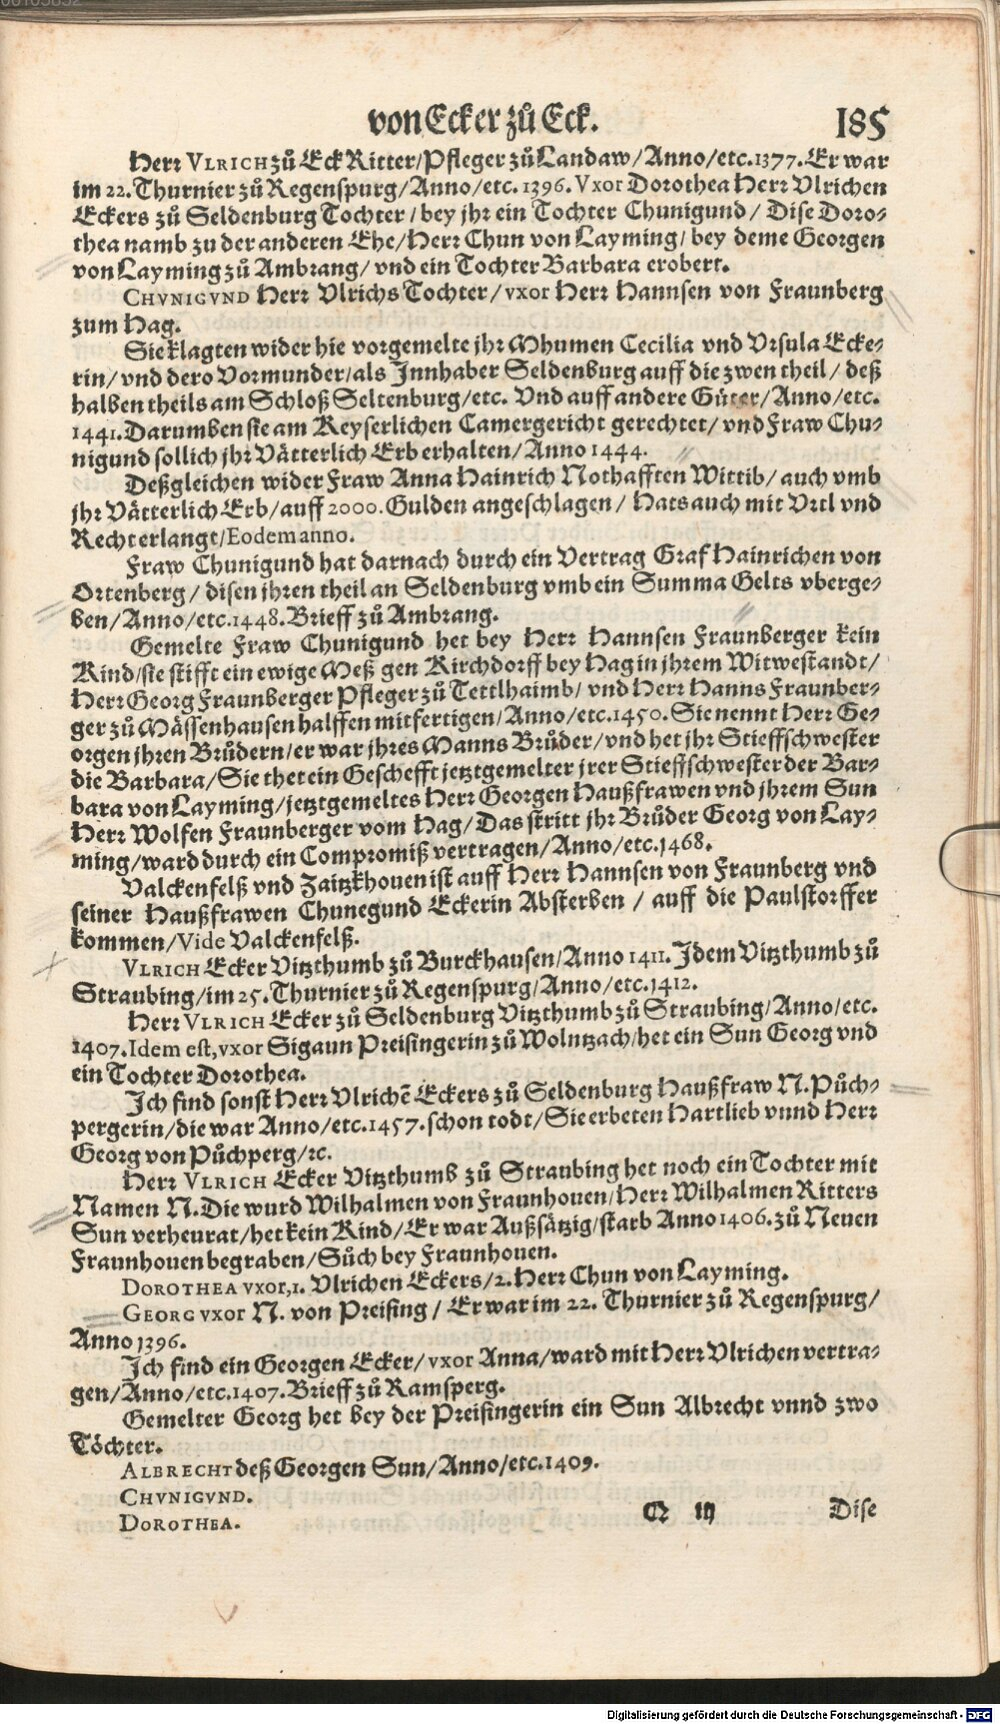 von Ecker zů Eck. 185
Herr VLRICH zů Eck Ritter/Pfleger zů Landaw/Anno/etc.1377.Er war
im 22.Thurnier zů Regenspurg/Anno/etc.1396.Vxor Dorothea Herr Vlrichen
Eckers zů Seldenburg Tochter/bey jhr ein Tochter Chunigund/Dise Doro-
thea namb zu der anderen Ehe/Herr Chun von Layming/bey deme Georgen
von Layming zů Ambrang/vnd ein Tochter Barbara erobert.
CHVNIGVND Herr Vlrichs Tochter/vxor Herr Hannsen von Fraunberg
zum Hag.
Sie klagten wider hie vorgemelte jhr Mhumen Cecilia vnd Vrsula Ecke-
rin/vnd dero Vormunder/als Innhaber Seldenburg auff die zwen theil/deß
halben theils am Schloß Seltenburg/etc. Vnd auff andere Güter/Anno/etc.
1441.Darumben sie am Keyserlichen Camergericht gerechtet/vnd Fraw Chu-
nigund sollich jhr Vätterlich Erb erhalten/Anno 1444.
Deßgleichen wider Fraw Anna Hainrich Nothafften Wittib/auch vmb
jhr Vätterlich Erb/auff 2000.Gulden angeschlagen/Hats auch mit Vrtl vnd
Recht erlangt/Eodem anno.
Fraw Chunigund hat darnach durch ein Vertrag Graf Hainrichen von
Ortenberg/disen jhren theil an Seldenburg vmb ein Summa Gelts vberge-
ben/Anno/etc.1448.Brieff zů Ambrang.
Gemelte Fraw Chunigund het bey Herr Hannsen Fraunberger kein
Kind/sie stifft ein ewige Meß gen Kirchdorff bey Hag in jhrem Witwestandt/
Herr Georg Fraunberger Pfleger zů Tettlhaimb/vnd Herr Hanns Fraunber-
ger zů Mässenhausen halffen mitfertigen/Anno/etc.1450.Sie nennt Herr Ge-
orgen jhren Brůdern/er war jhres Manns Brůder/vnd het jhr Stieffschwester
die Barbara/Sie thet ein Geschefft jetztgemelter jrer Stieffschwester der Bar-
bara von Layming/jetztgemeltes Herr Georgen Haußfrawen vnd jhrem Sun
Herr Wolfen Fraunberger vom Hag/Das stritt jhr Brůder Georg von Lay-
ming/ward durch ein Compromiß vertragen/Anno/etc.1468.
Valckenfelß vnd Zaitzkhouen ist auff Herr Hannsen von Fraunberg vnd
seiner Haußfrawen Chunegund Eckerin Absterben/auff die Paulstorffer
kommen/Vide Valckenfelß.
VLRICH Ecker Vitzthumb zů Burckhausen/Anno 1411.Idem Vitzthumb zů
Straubing/im 25.Thurnier zů Regenspurg/Anno/etc.1412.
Herr VLRICH Ecker zů Seldenburg Vitzthumb zů Straubing/Anno/etc.
1407.Idem est,vxor Sigaun Preisingerin zů Wolntzach/het ein Sun Georg vnd
ein Tochter Dorothea.
Ich find sonst Herr Vlrichē Eckers zů Seldenburg Haußfraw N.Půch-
pergerin/die war Anno/etc.1457.schon todt/Sie erbeten Hartlieb vnnd Herr
Georg von Půchperg/ꝛc.
Herr VLRICH Ecker Vitzthumb zů Straubing het noch ein Tochter mit
Namen N.Die wurd Wilhalmen von Fraunhouen/Herr Wilhalmen Ritters
Sun verheurat/het kein Kind/Er war Außsätzig/starb Anno 1406.zů Neuen
Fraunhouen begraben/Sůch bey Fraunhouen.
DOROTHEA vxor,1. Vlrichen Eckers/2.Herr Chun von Layming.
GEORG vxor N. von Preising/Er war im 22. Thurnier zů Regenspurg/
Anno 1396.
Ich find ein Georgen Ecker/vxor Anna/ward mit Herr Vlrichen vertra-
gen/Anno/etc.1407.Brieff zů Ramsperg.
Gemelter Georg het bey der Preisingerin ein Sun Albrecht vnnd zwo
Töchter.
ALBRECHT deß Georgen Sun/Anno/etc.1409.
CHVNIGVND.
DOROTHEA.
Q iij Dise
Digitalisierung gefördert durch die Deutsche Forschungsgemeinschaft - DFG